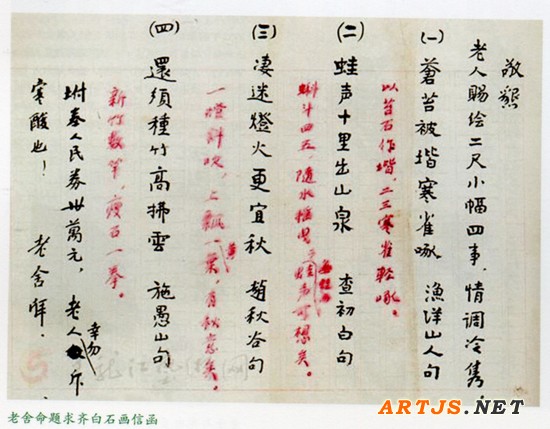 敬懇
老人赐绘二尺小幅四事,情调冷雋:
(一) 蒼苔被堦寒雀啄 漁洋山人句
以苔石作堦,二三寒雀輕啄。
(二) 蛙声十里出山泉 查初白句
蝌斗四五,隨水摇曳,蛙声可想矣。
(三) 凄迷燈火更宜秋 趙秋谷句
一燈斜吹,上飄一黄葉,有秋意矣。
(四) 還須種竹高拂雲 施愚山句
新竹数竿,瘦石一拳。
坿奉人民券卅萬元,老人幸勿斥
寒酸也! 老舍拜.
老舍命题求齐白石画信函
ARTJS.NET